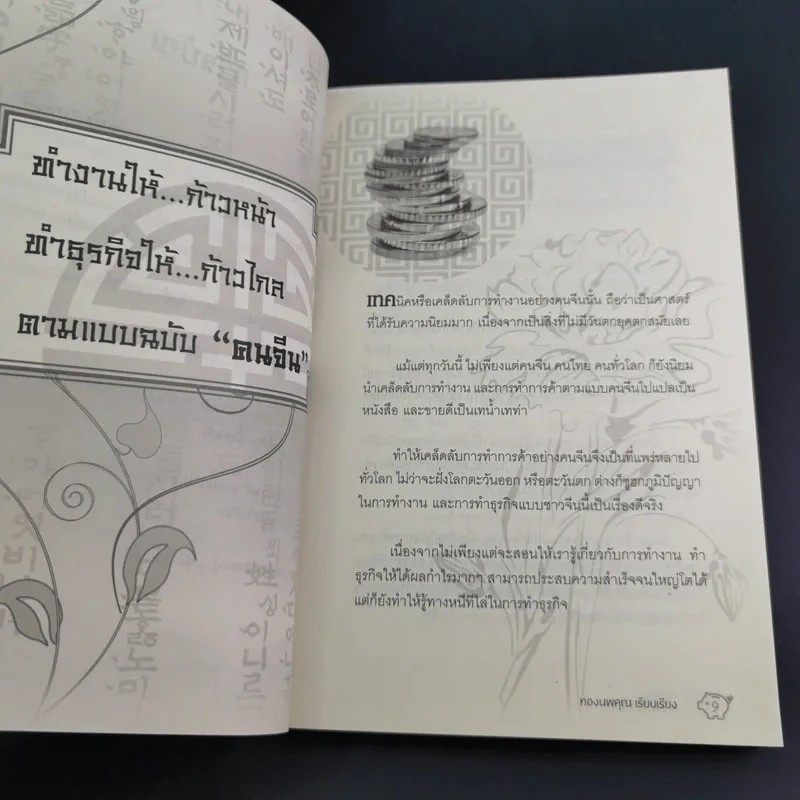 ทำงานให้...ก้าวหน้า
ทำธุรกิจให้...ก้าวไกล
ตามแบบฉบับ “คนจีน”
เทคนิคหรือเคล็ดลับการทำงานอย่างคนจีนนั้น ถือว่าเป็นศาสตร์
ที่ได้รับความนิยมมาก เนื่องจากเป็นสิ่งที่ไม่มีวันตกยุคตกสมัยเลย
แม้แต่ทุกวันนี้ ไม่เพียงแต่คนจีน คนไทย คนทั่วโลก ก็ยังนิยม
นำเคล็ดลับการทำงาน และการทำการค้าตามแบบคนจีนไปแปลเป็น
หนังสือ และขายดีเป็นเทน้ำเทท่า
ทำให้เคล็ดลับการทำการค้าอย่างคนจีนจึงเป็นที่แพร่หลายไป
ทั่วโลก ไม่ว่าจะฝั่งโลกตะวันออก หรือตะวันตก ต่างก็ชูฮกภูมิปัญญา
ในการทำงาน และการทำธุรกิจแบบชาวจีนนี้เป็นเรื่องดีจริง
เนื่องจากไม่เพียงแต่จะสอนให้เรารู้เกี่ยวกับการทำงาน ทำ
ธุรกิจให้ได้ผลกำไรมากๆ สามารถประสบความสำเร็จจนใหญ่โตได้
แต่ก็ยังทำให้รู้ทางหนีทีไล่ในการทำธุรกิจ
ทองนพคุณ เรียบเรียง 9